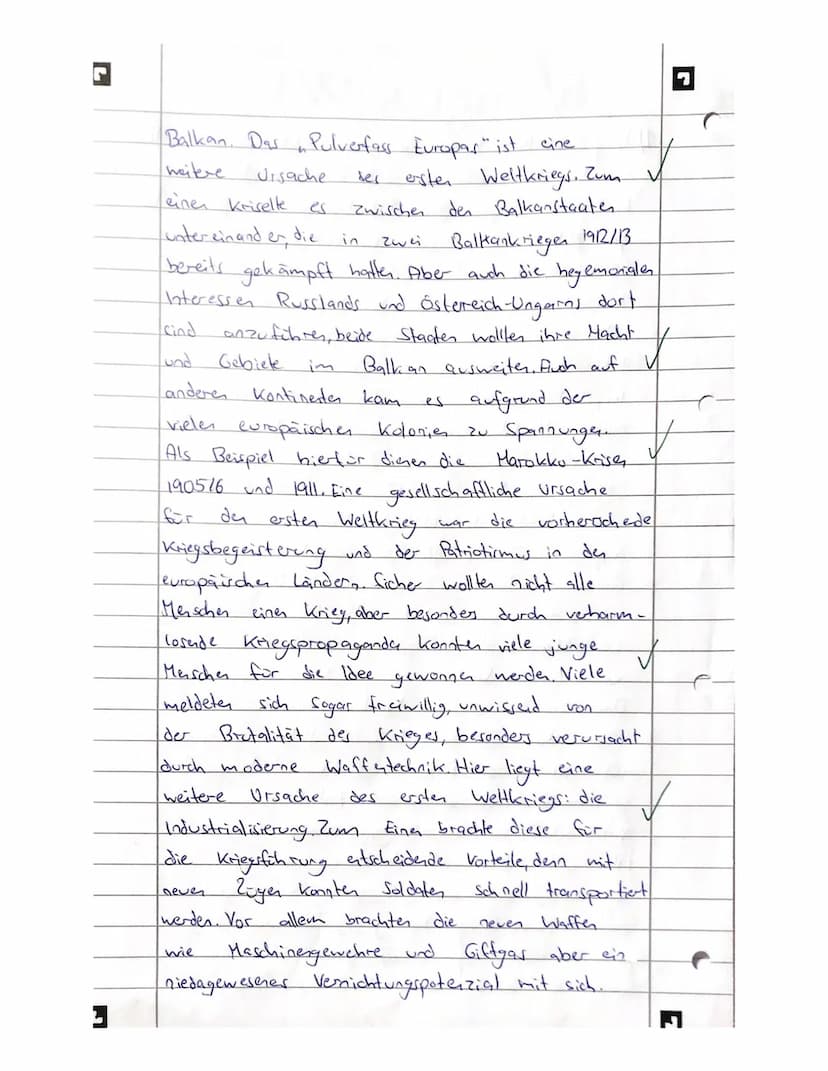 Balkan. Das „Pulverfass Europas" ist eine
weitere Ursache des ersten Weltkriegs. Zum
einen kriselte es zwischen den Balkanstaaten
untereinander, die in zwei Balkankriegen 1912/13
bereits gekämpft hatten. Aber auch die hegemonialen
Interessen Russlands und Österreich-Ungarns dort
sind anzuführen, beide Staaten wollten ihre Macht
und Gebiete im Balkan ausweiten. Auch auf
anderen Kontineten kam es aufgrund der
vielen europäischen Kolonien zu Spannungen.
Als Beispiel hierfür dienen die Marokko-Krisen
1905/6 und 1911. Eine gesellschaftliche Ursache
für den ersten Weltkrieg war die vorherschede
Kriegsbegeisterung und der Patriotismus in den
europäischen Ländern. Sicher wollten nicht alle
Menschen einen Krieg, aber besonders durch verharm-
losende Kriegspropaganda konnten viele junge
Menschen für die Idee gewonnen werden. Viele
meldeten sich sogar freiwillig, unwissend von
der Brutalität des Krieges, besonders verursacht
durch moderne Waffentechnik. Hier liegt eine
weitere Ursache des ersten Weltkriegs: die
Industrialisierung. Zum Einen brachte diese für
die Kriegsführung entscheidende Vorteile, denn mit
neuen Zügen konnten Soldaten schnell transportiert
werden. Vor allem brachten die neuen Waffen
wie Maschinengewehre und Giftgas aber ein
niedagewesenes Vernichtungspotenzial mit sich.